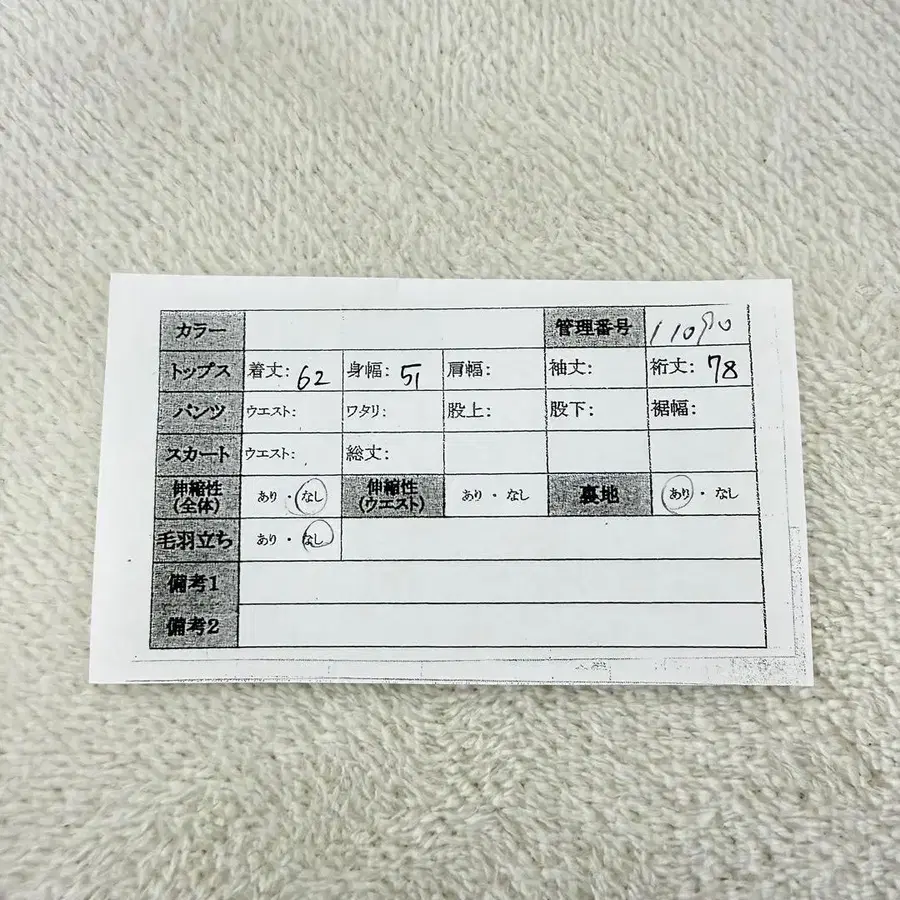 カラー 管理番号 11090
トップス 着丈: 62 身幅: 51 肩幅: 袖丈: 裄丈: 78
パンツ ウエスト: ワタリ: 股上: 股下: 裾幅:
スカート ウエスト: 総丈:
伸縮性(全体) あり・なし 伸縮性(ウエスト) あり・なし 裏地 あり・なし
毛羽立ち あり・なし
備考1
備考2